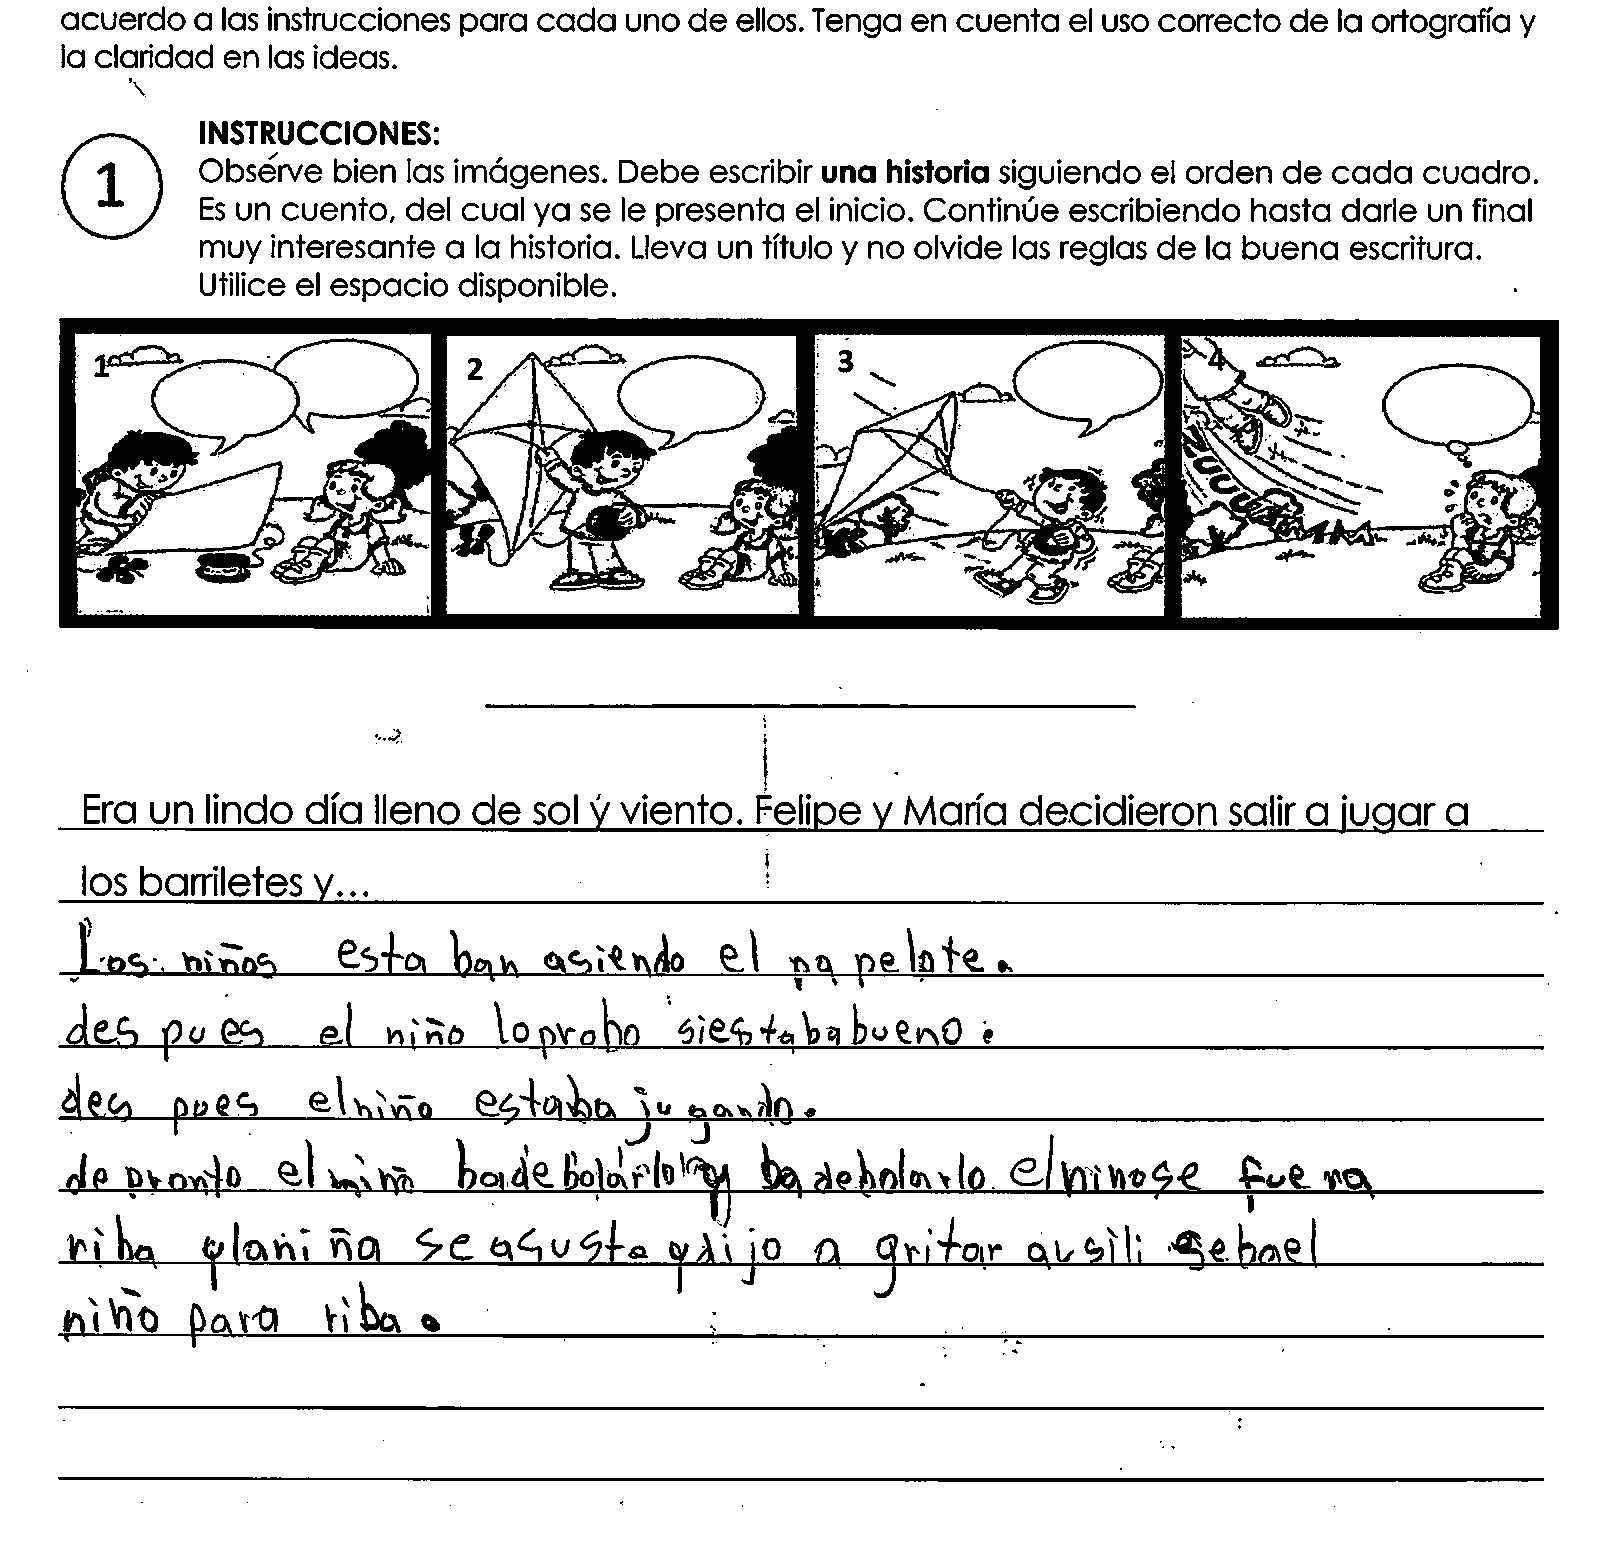 acuerdo a las instrucciones para cada uno de ellos. Tenga en cuenta el uso correcto de la ortografía y
la claridad en las ideas.
1
INSTRUCCIONES:
Observe bien las imágenes. Debe escribir una historia siguiendo el orden de cada cuadro.
Es un cuento, del cual ya se le presenta el inicio. Continúe escribiendo hasta darle un final
muy interesante a la historia. Lleva un título y no olvide las reglas de la buena escritura.
Utilice el espacio disponible.
1
2
3
4
ZUUUM
Era un lindo día lleno de sol y viento. Felipe y María decidieron salir a jugar a
los barriletes y...
Los niños esta ban asiendo el pa pelote.
des pues el niño loprobo siestababueno.
des pues elniño estaba jugando.
de pronto el niño badebolarlo y ba debolarlo elninose fue pa
riba ylaniña seasusto ydijo a gritar ausili sebael
niño para riba.